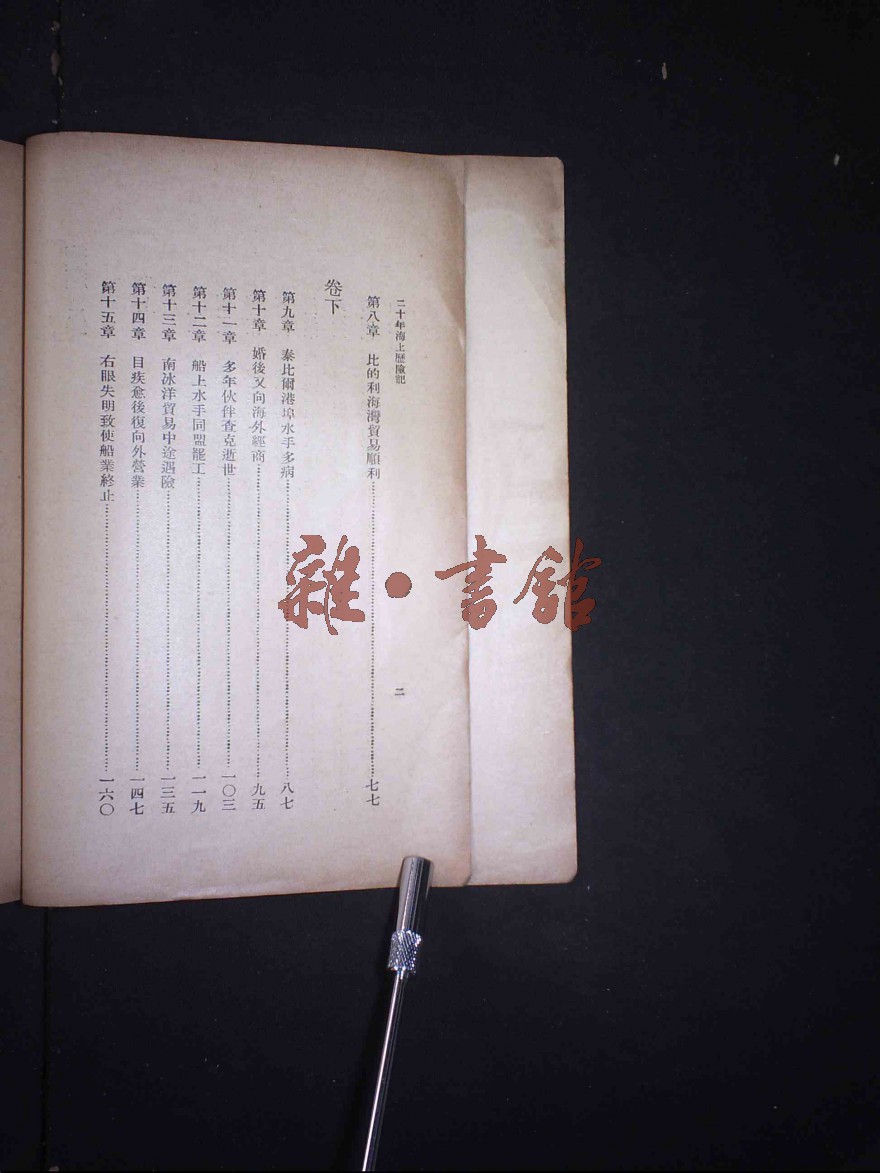 二十年海上歷險記
第八章 比的利海灣貿易順利 七七
卷下
第九章 泰比爾港埠水手多病 八七
第十章 婚後又向海外經商 九五
第十一章 多年伙伴查克逝世 一〇三
第十二章 船上水手同盟罷工 一一九
第十三章 南冰洋貿易中途遇險 一三五
第十四章 目疾愈後復向外營業 一四七
第十五章 右眼失明致使船業終止 一六〇
二
雜·書館